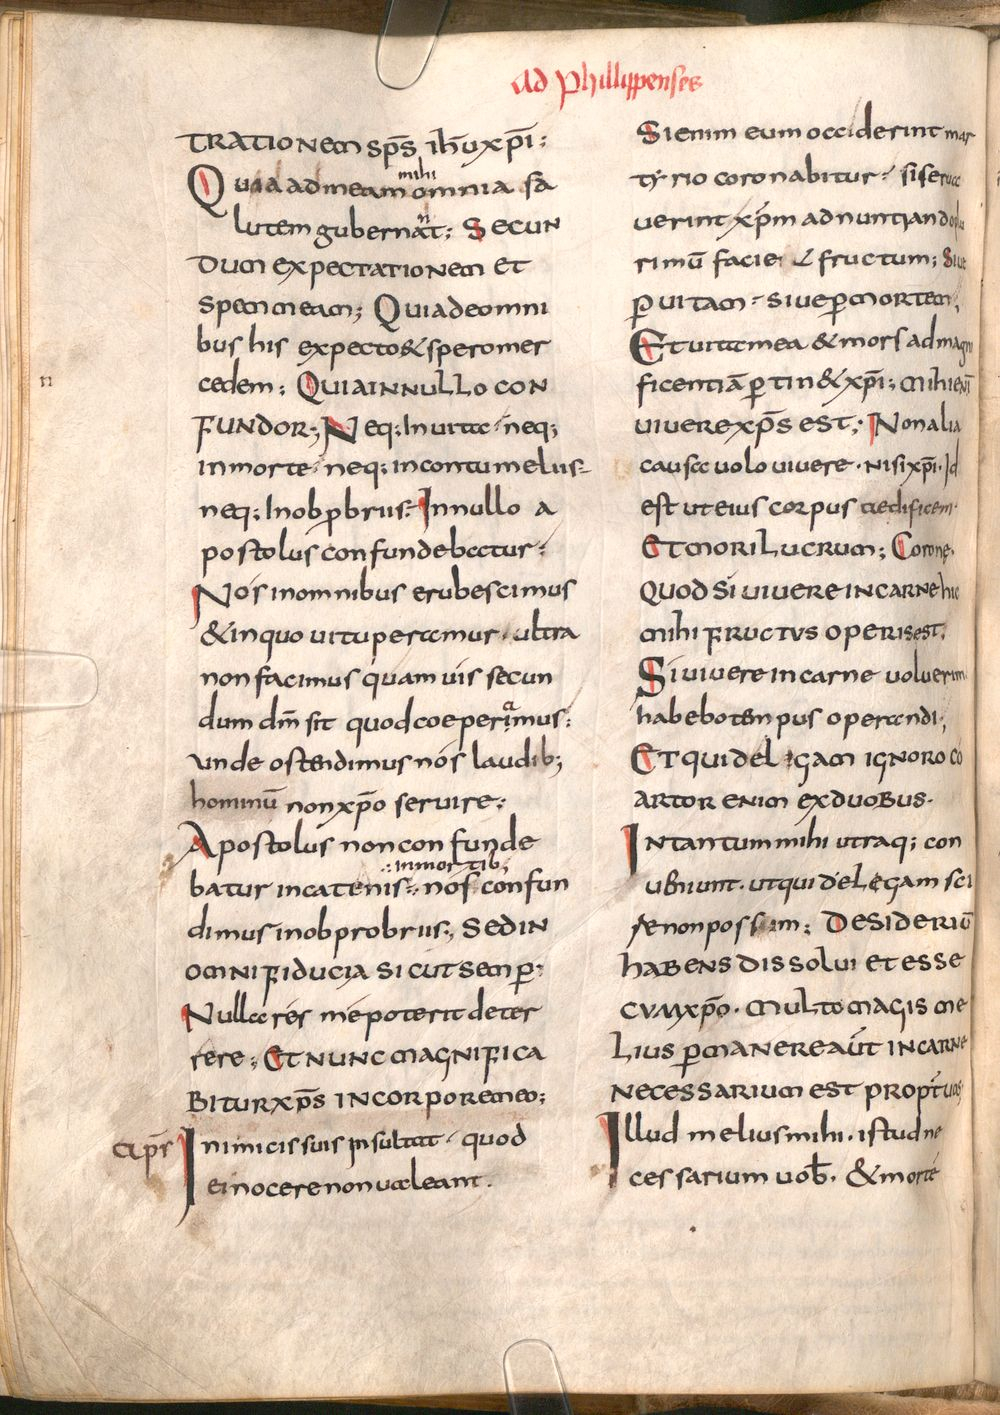 ad Phillippenses
TRATIONEM SPS̄ IHŪ XPĪ:
Quia ad meam omnia sa
mihi
lutem gubernat: SECUN
n
DUM EXPECTATIONEM ET
SPEM MEAM; Quia de omni
bus his expecto & spero mer
cedem: QUIA IN NULLO CON
FUNDOR; Neq; In uita· neq;
n
in morte· neq; in contumeliis
neq; In obp̱briis: In nullo a
postolus confundebatur:
Nos in omnibus erubescimus
& in quo uituperamur· ultra
non facimus quam uis secun
dum dm̄ sit quod coeperimus:
a
unde ostendimus nós laudib;
hominū non xp̄o seruire;
Apostolus non confunde
∴ in mortib;
batur in catenis∴ nos confun
dimus in obprobriis; SED IN
OMNI FIDUCIA SICUT SEMP̱:
Nulla rés mé poterit deter
rere; ET NUNC MAGNIFICA
BITUR XPS̄ IN CORPORE MEO;
cip̄r Inimicis suis insultat· quod
ei nocere non ualeant.
Si enim eum occiderint mar
tyrio coronabitur: si serua
uerint xp̄m adnuntiando plu
rimū faciet & fructum; SIUE
P̱ UITAM· SIUE P̱ MORTEM,
Et uita mea & mors ad magni
ficentiā p̱tin& xp̄i; MIHI ENI̅
UIUERE XPS̄ EST; Non alia
causa uolo uiuere· nisi xp̄i· Id
est ut eius corpus aedificem·
ET MORI LUCRUM; Corone.
QUOD SI UIUERE IN CARNE hic
MIHI FRUCTUS OPERIS EST;
Si uiuere in carne uoluerim
habebo tempus operandi;
ET QUID ELIGAM IGNORO CO
ARTOR ENIM EX DUOBUS·
In tantum mihi utraq; con
ueniunt· ut quid elegam sci
re non possum; DESIDERIŪ
HABENS DISSOLUI ET ESSE
CUM XP̄O· MULTO MAGIS ME
LIUS P̱MANERE AUT̄ IN CARNE
NECESSARIUM EST PROPT̄ UOS
Illud melius mihi· istud ne
cessarium uob̄· & morte